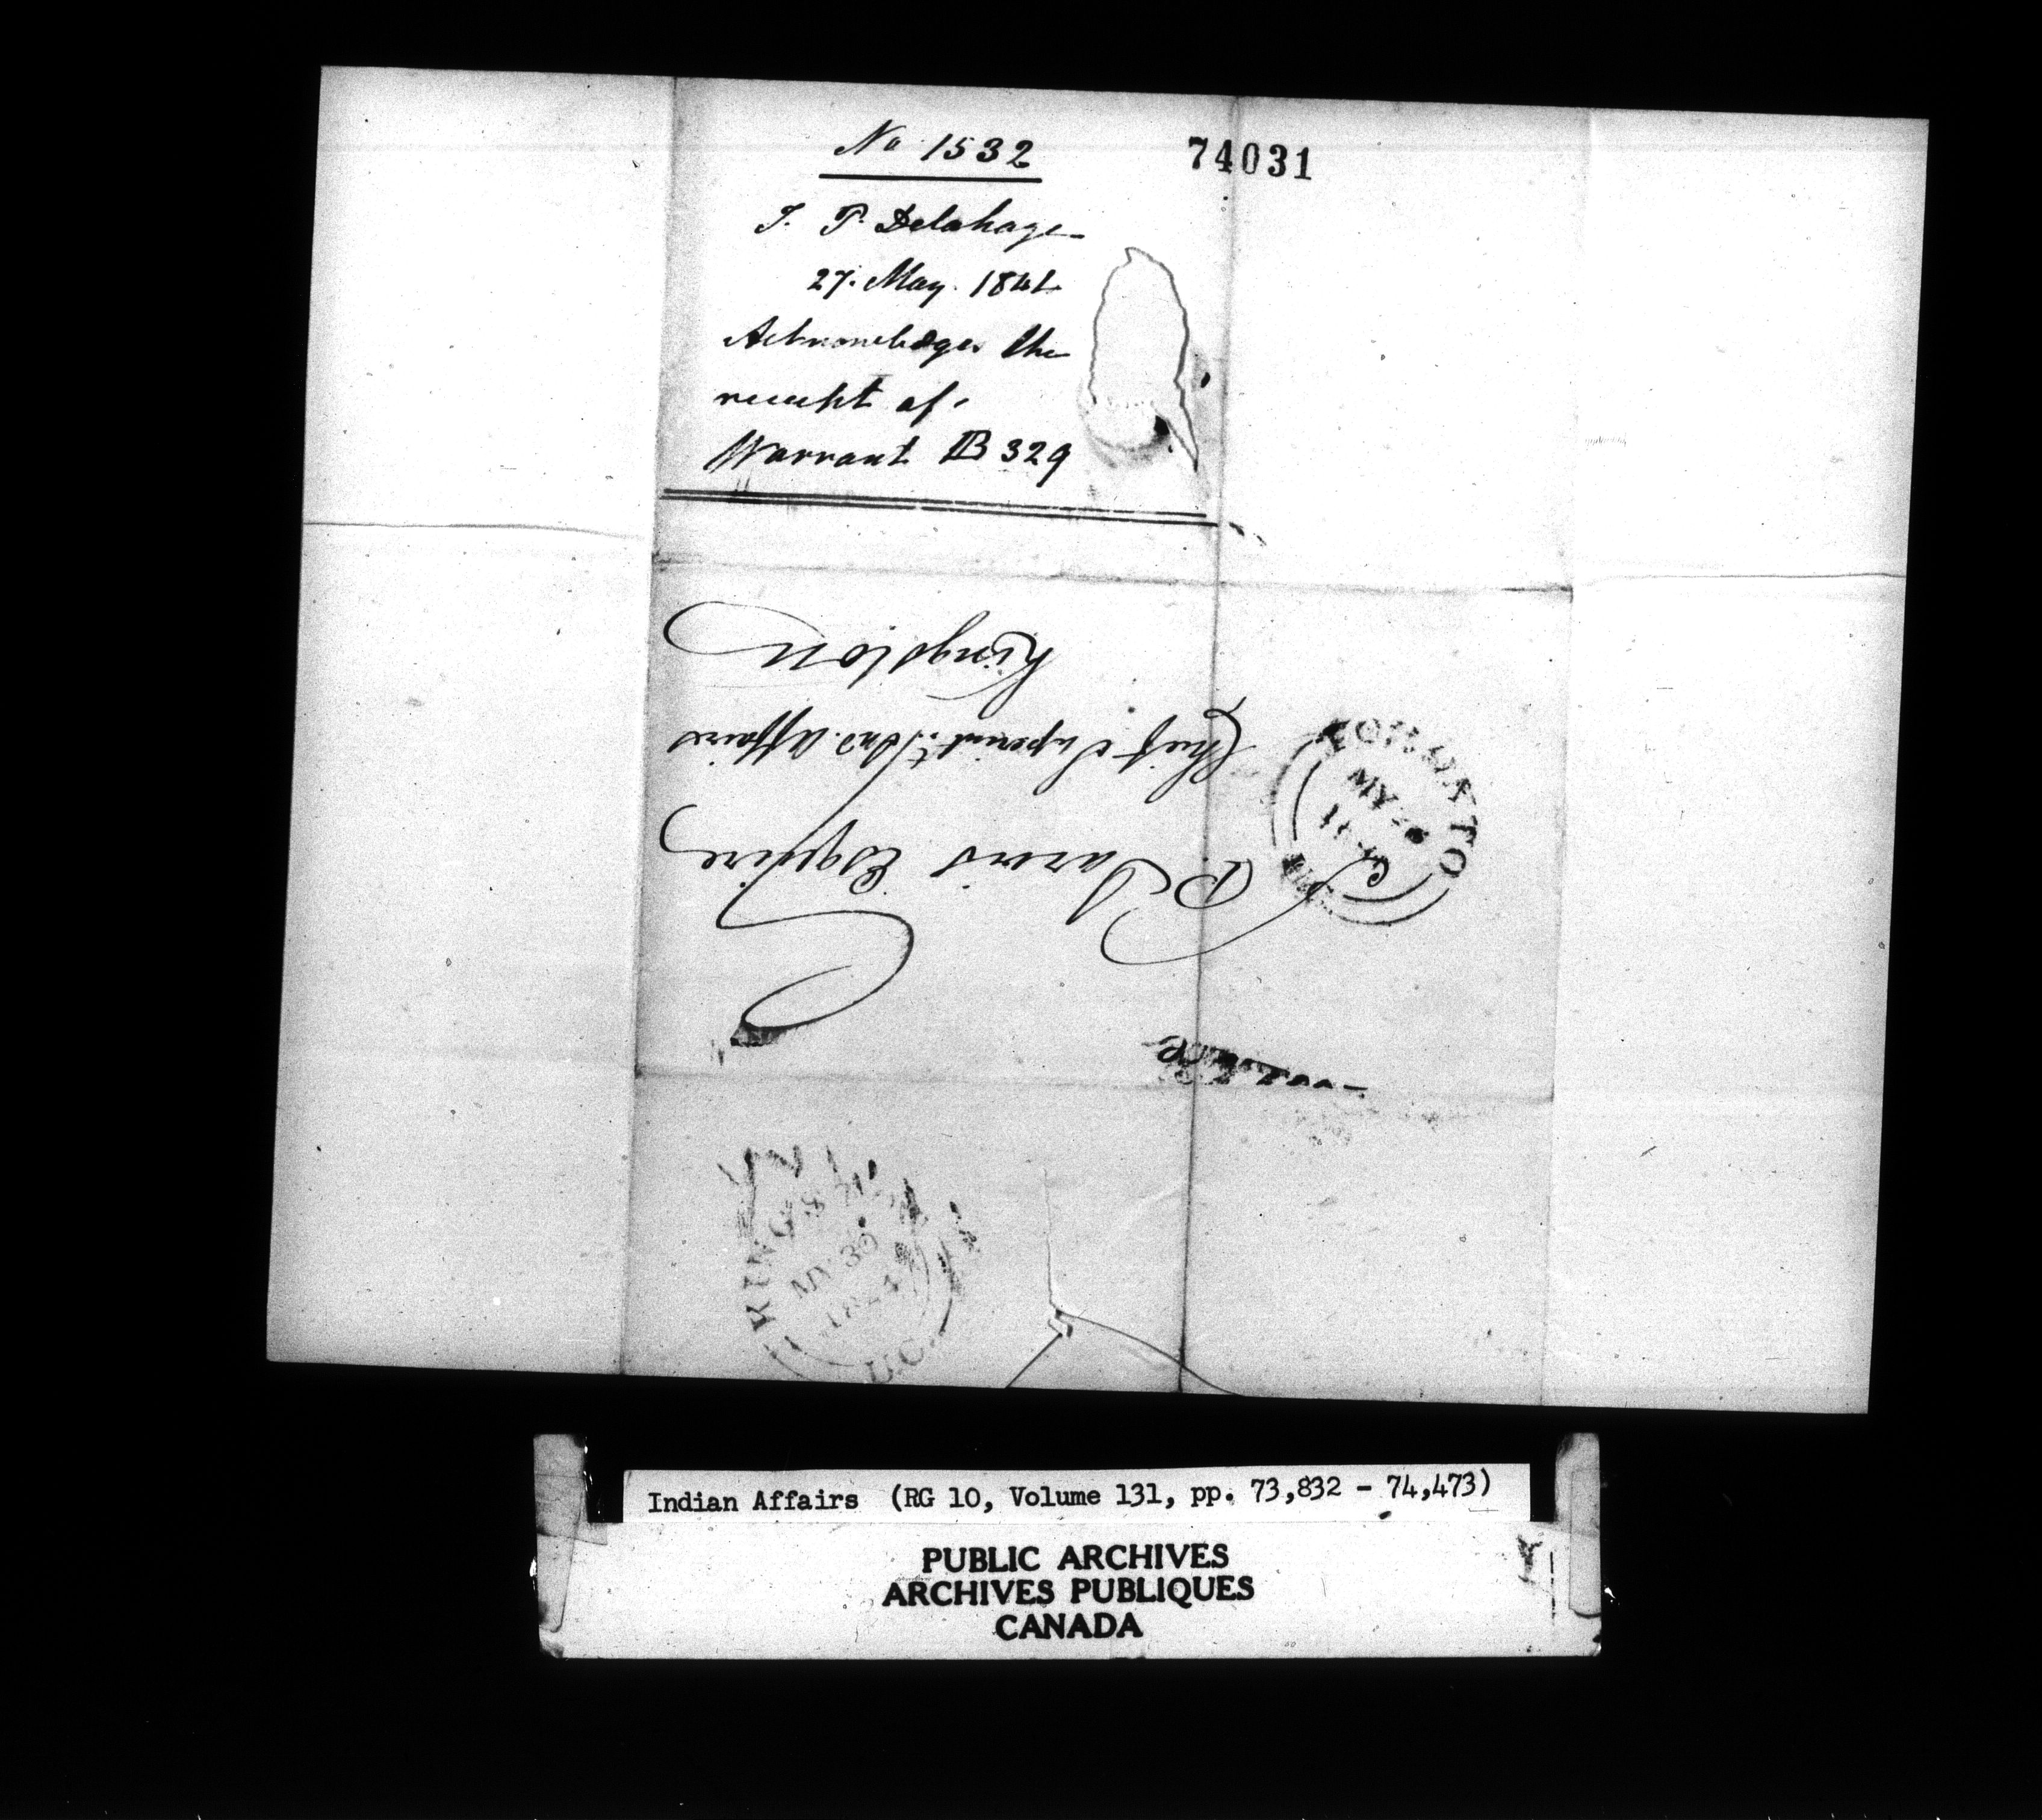 No 1532
74031
J. P. Delahaye
27. May. 1844
Acknowledges the
receipt of
Warrant B 329
Kingston
Chief Superint.t Ind. Affairs
S P Jarvis Esquire
TORONTO
MY
KINGSTON
MY 30
1844
U.C.
Indian Affairs (RG 10, Volume 131, pp. 73,832 - 74,473)
PUBLIC ARCHIVES
ARCHIVES PUBLIQUES
CANADA